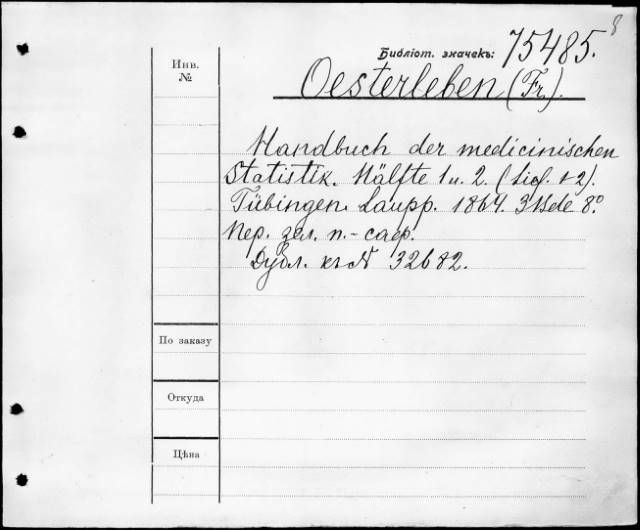 8
Библіот. значекъ: 75485.
Инв.
№
Oesterleben (Fr.).
Handbuch der medicinischen
Statistik. Hälfte 1 u. 2. (Lief. 1+2).
Tübingen. Laupp. 1864. 3 Bde 8º
Пер. зел. п.-саф.
Дубл. къ № 32682.
По заказу
Откуда
Цѣна